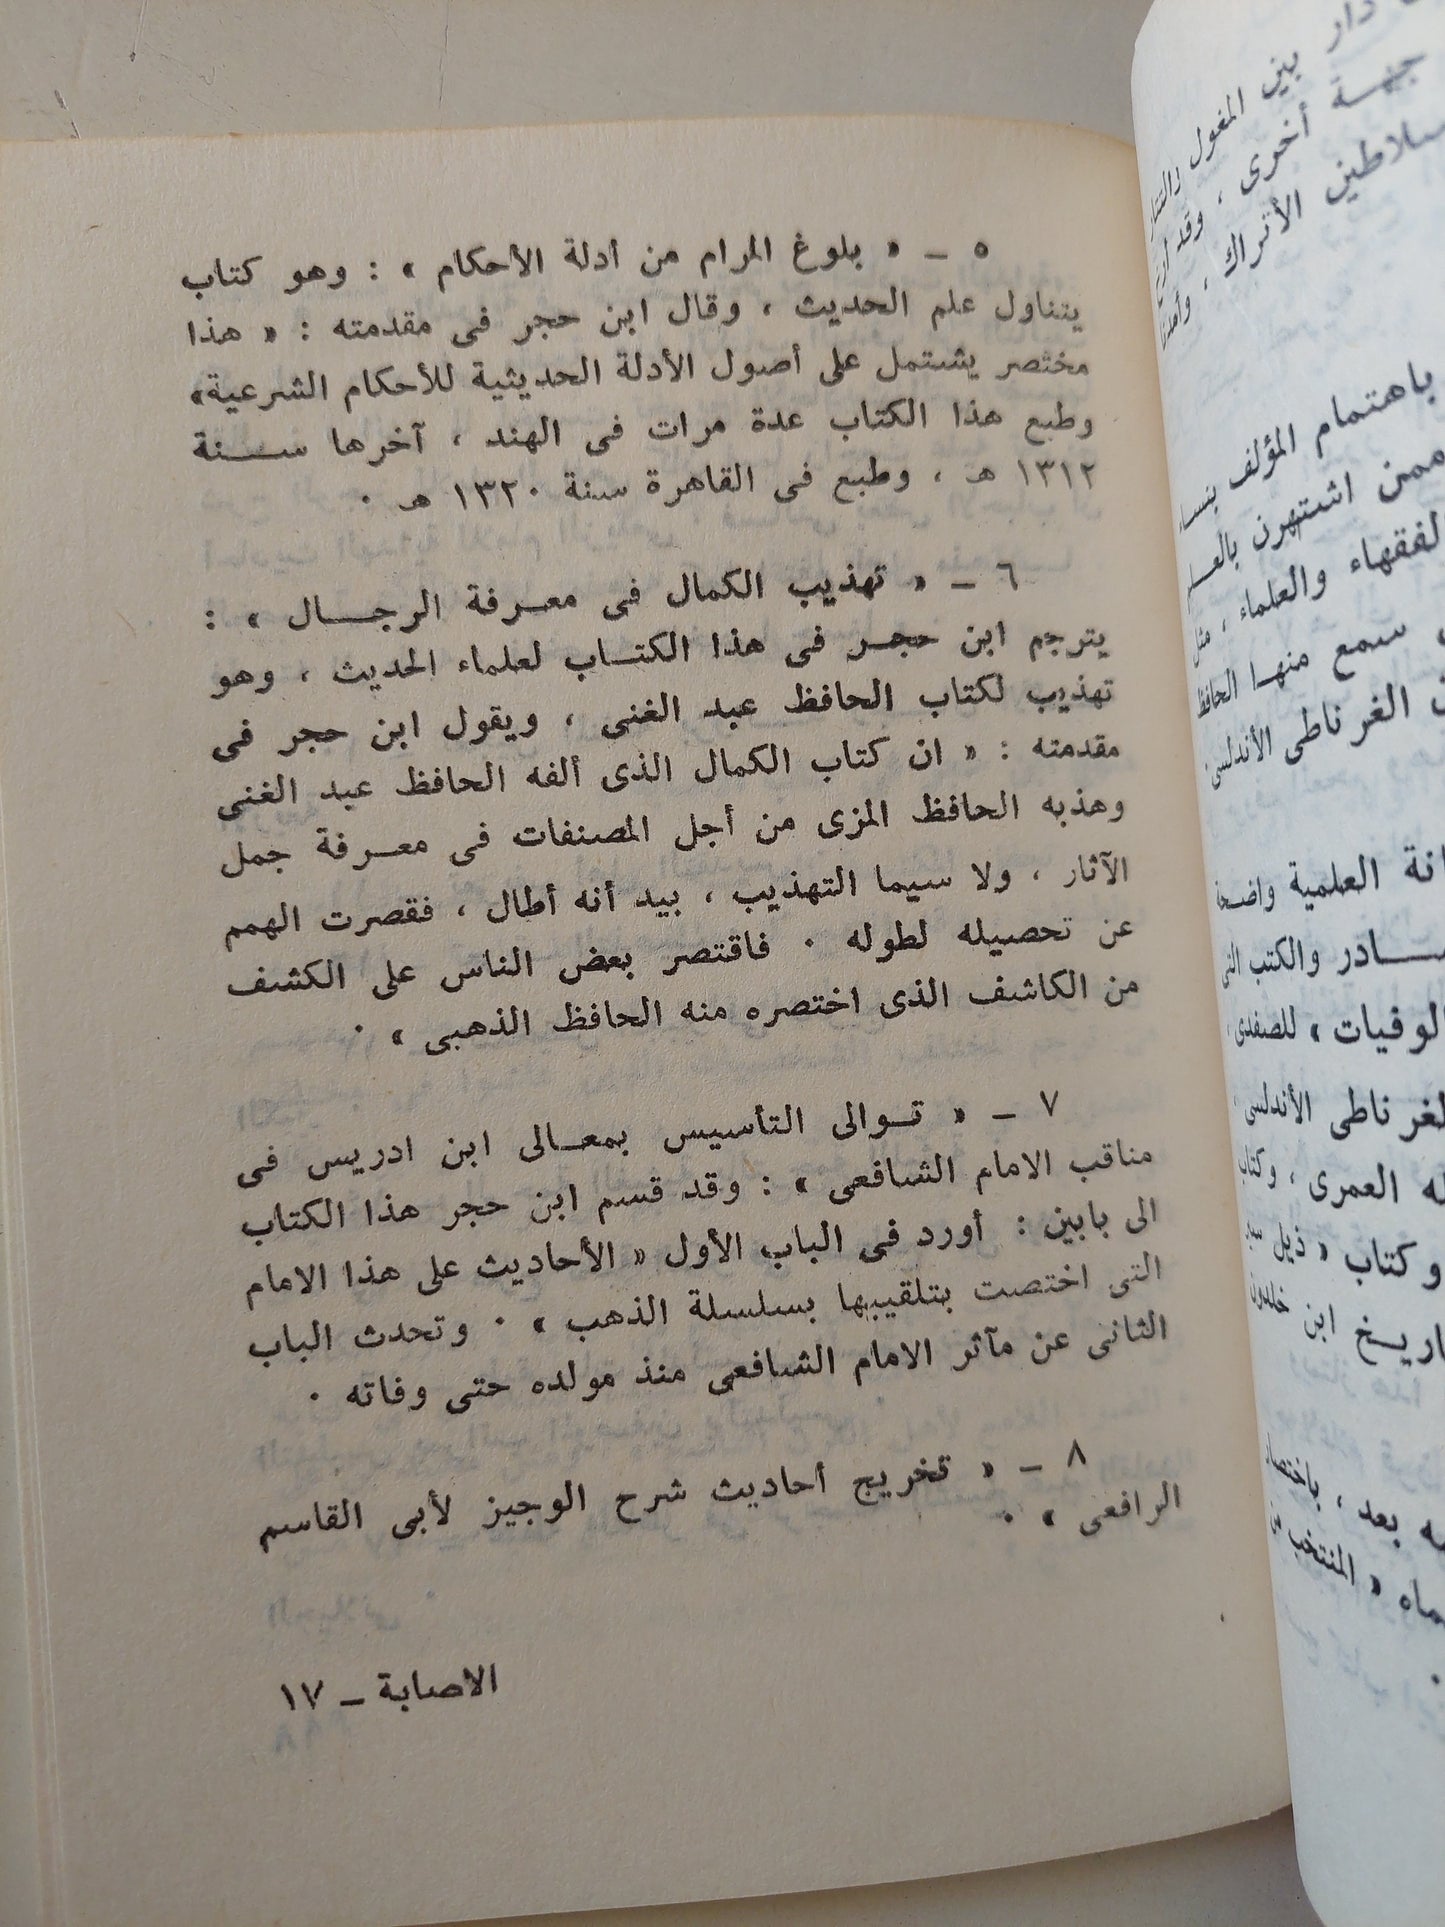 ٥ ــ « بلوغ المرام من أدلة الأحكام » : وهو كتاب
يتناول علم الحديث ، وقال ابن حجر فى مقدمته : « هذا
مختصر يشتمل على أصول الأدلة الحديثية للأحكام الشرعية»
وطبع هذا الكتاب عدة مرات فى الهند ، آخرها ســـنة
١٣١٢ هـ ، وطبع فى القاهرة سنة ١٣٢٠ هـ ٠
٦ ــ « تهذيب الكمال فى معـرفة الرجـــال » :
يترجم ابن حجـر فى هذا الكتـاب لعلماء الحديث ، وهو
تهذيب لكتاب الحافظ عبد الغنى ، ويقول ابن حجر فى
مقدمته : « ان كتاب الكمال الذى ألفه الحافظ عبد الغنى
وهذبه الحافظ المزى من أجل المصنفات فى معـرفة جمل
الآثار ، ولا سيما التهذيب ، بيد أنه أطال ، فقصرت الهمم
عن تحصيله لطوله ٠ فاقتصر بعض الناس على الكشف
من الكاشف الذى اختصره منه الحافظ الذهبى » ٠
٧ ــ « تـوالى التأسيس بمعـالى ابن ادريس فى
مناقب الامام الشافعى » : وقد قسم ابن حجر هذا الكتاب
الى بابين : أورد فى الباب الأول « الأحاديث على هذا الامام
التى اختصت بتلقيبها بسلسلة الذهب » ٠ وتحدث الباب
الثانى عن مآثر الامام الشافعى منذ مولده حتى وفاته ٠
٨ ــ « تخريج أحاديث شرح الوجيز لأبى القاسم
الرافعى » ٠
الاصابة ــ ١٧
دار بين المغول والتتار
جهـة أخرى ، وقد
الأتراك ،
باهتمام المؤلف
ممن اشتهرن
والعلماء ، مثل
سمع منهـا الحافظ
الغرناطى الأندلسى
العلمية
والكتب التى
الوفيات » للصفدى
الأندلسى
العمرى ، وكتاب
وكتاب « ذيل
ابن خلدون
بعد ،
« المنتخب من